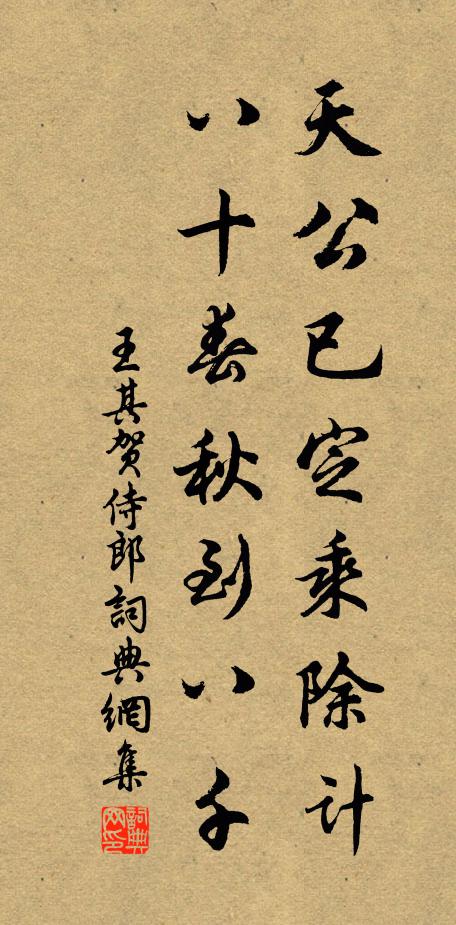 天公已定乘除计
八十春秋到八千
王其贺侍郎詞典網集
詞典网印